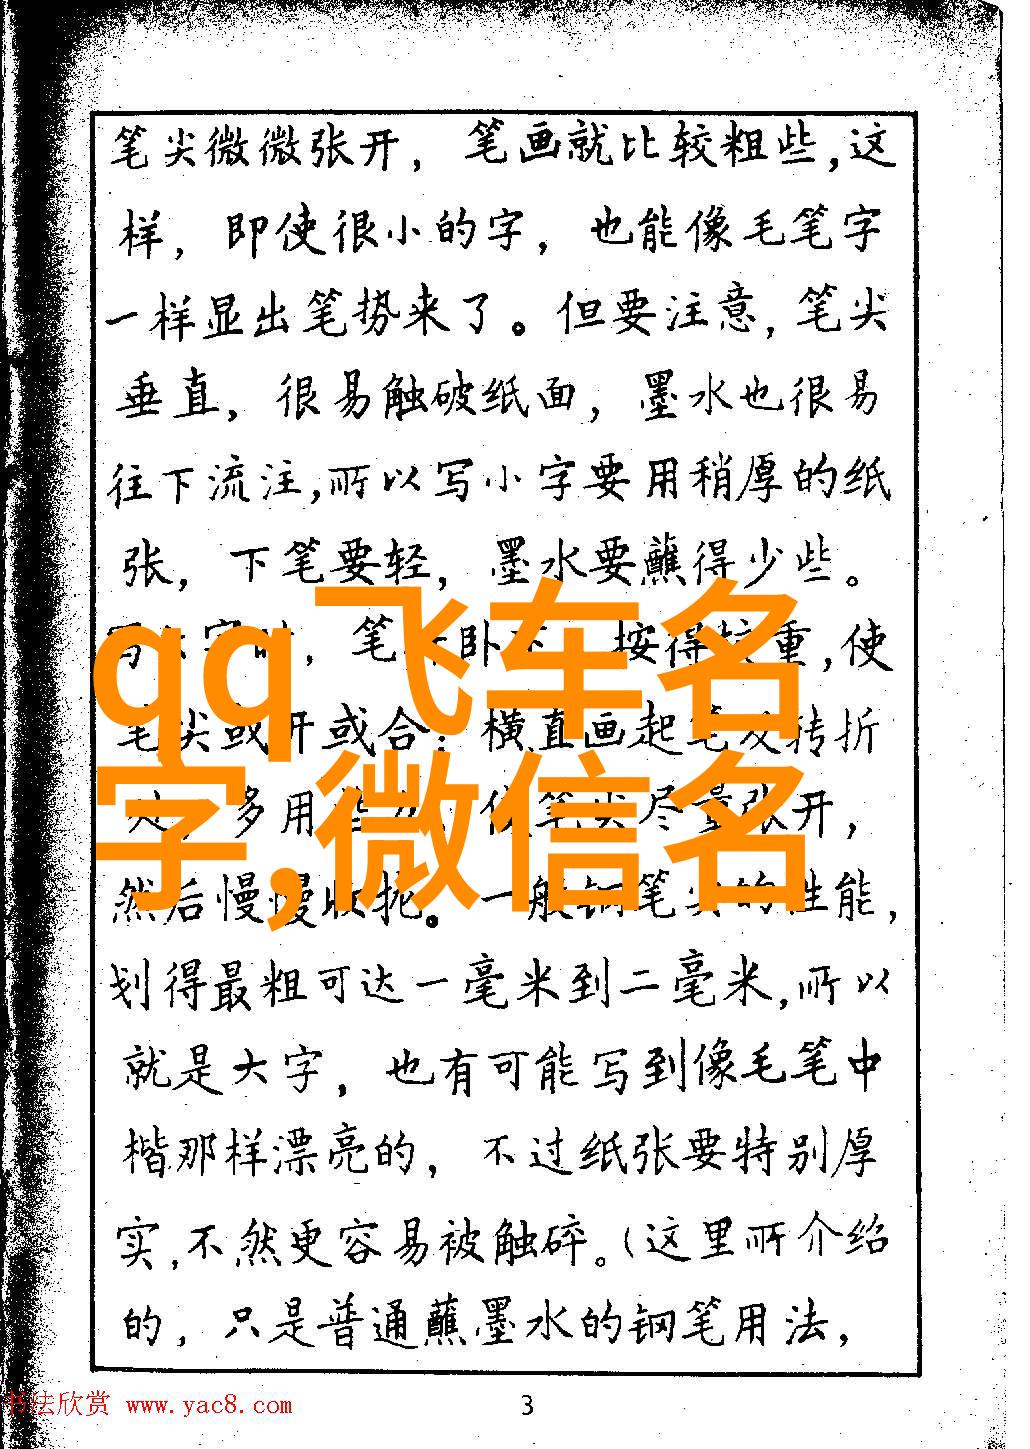 笔尖微微张开，笔画就比较粗些，这
样，即使很小的字，也能像毛笔字
一样显出笔势来了。但要注意，笔尖
垂直，很易触破纸面，墨水也很易
往下流注，所以写小字要用稍厚的纸
张，下笔要轻，墨水要蘸得少些。
笔 卧 按得较重，使
笔尖或开或合；横直画起笔及转折
多用 笔尖尽量张开，
然后慢慢收拢。一般钢笔尖的性能，
划得最粗可达一毫米到二毫米，所以
就是大字，也有可能写到像毛笔中
楷那样漂亮的，不过纸张要特别厚
实，不然更容易被触碎。（这里所介绍
的，只是普通蘸墨水的钢笔用法，
qq飞车名
字,微信名
书法欣赏 www.yac8.com
3